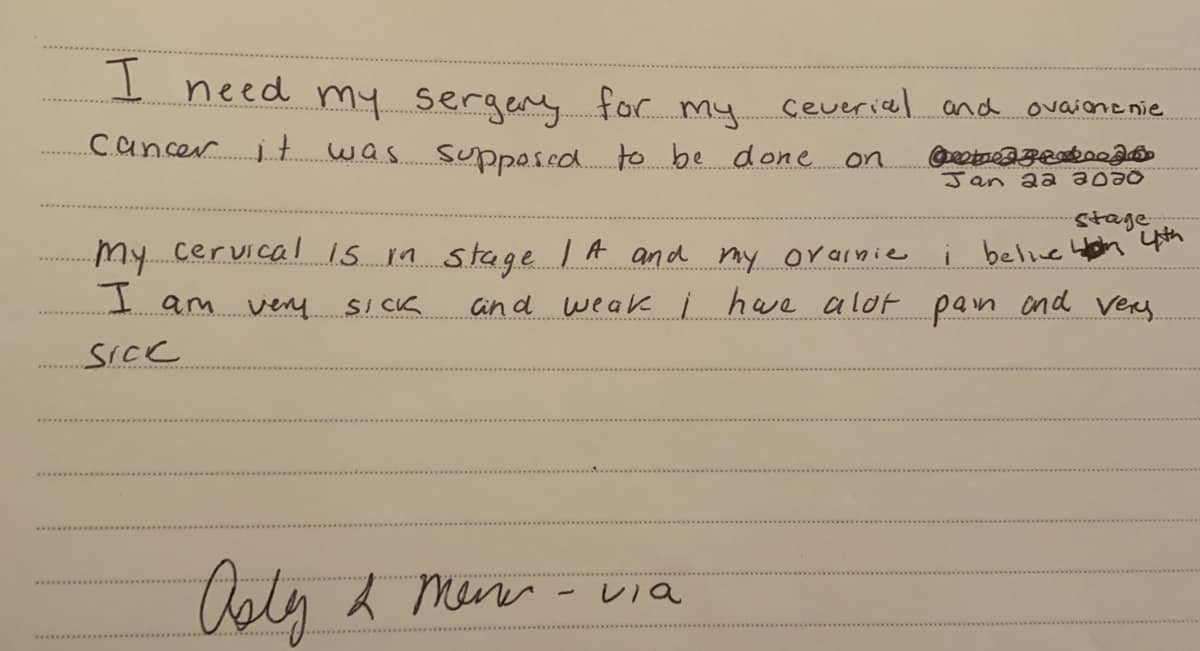 I need my sergery for my ceverial and ovaionenie
cancer it was supposed to be done on
Jan 22 2020
stage
my cervical is in stage 1A and my ovainie i belive 4th
I am very sick and weak i have alot pain and very
sick
- via